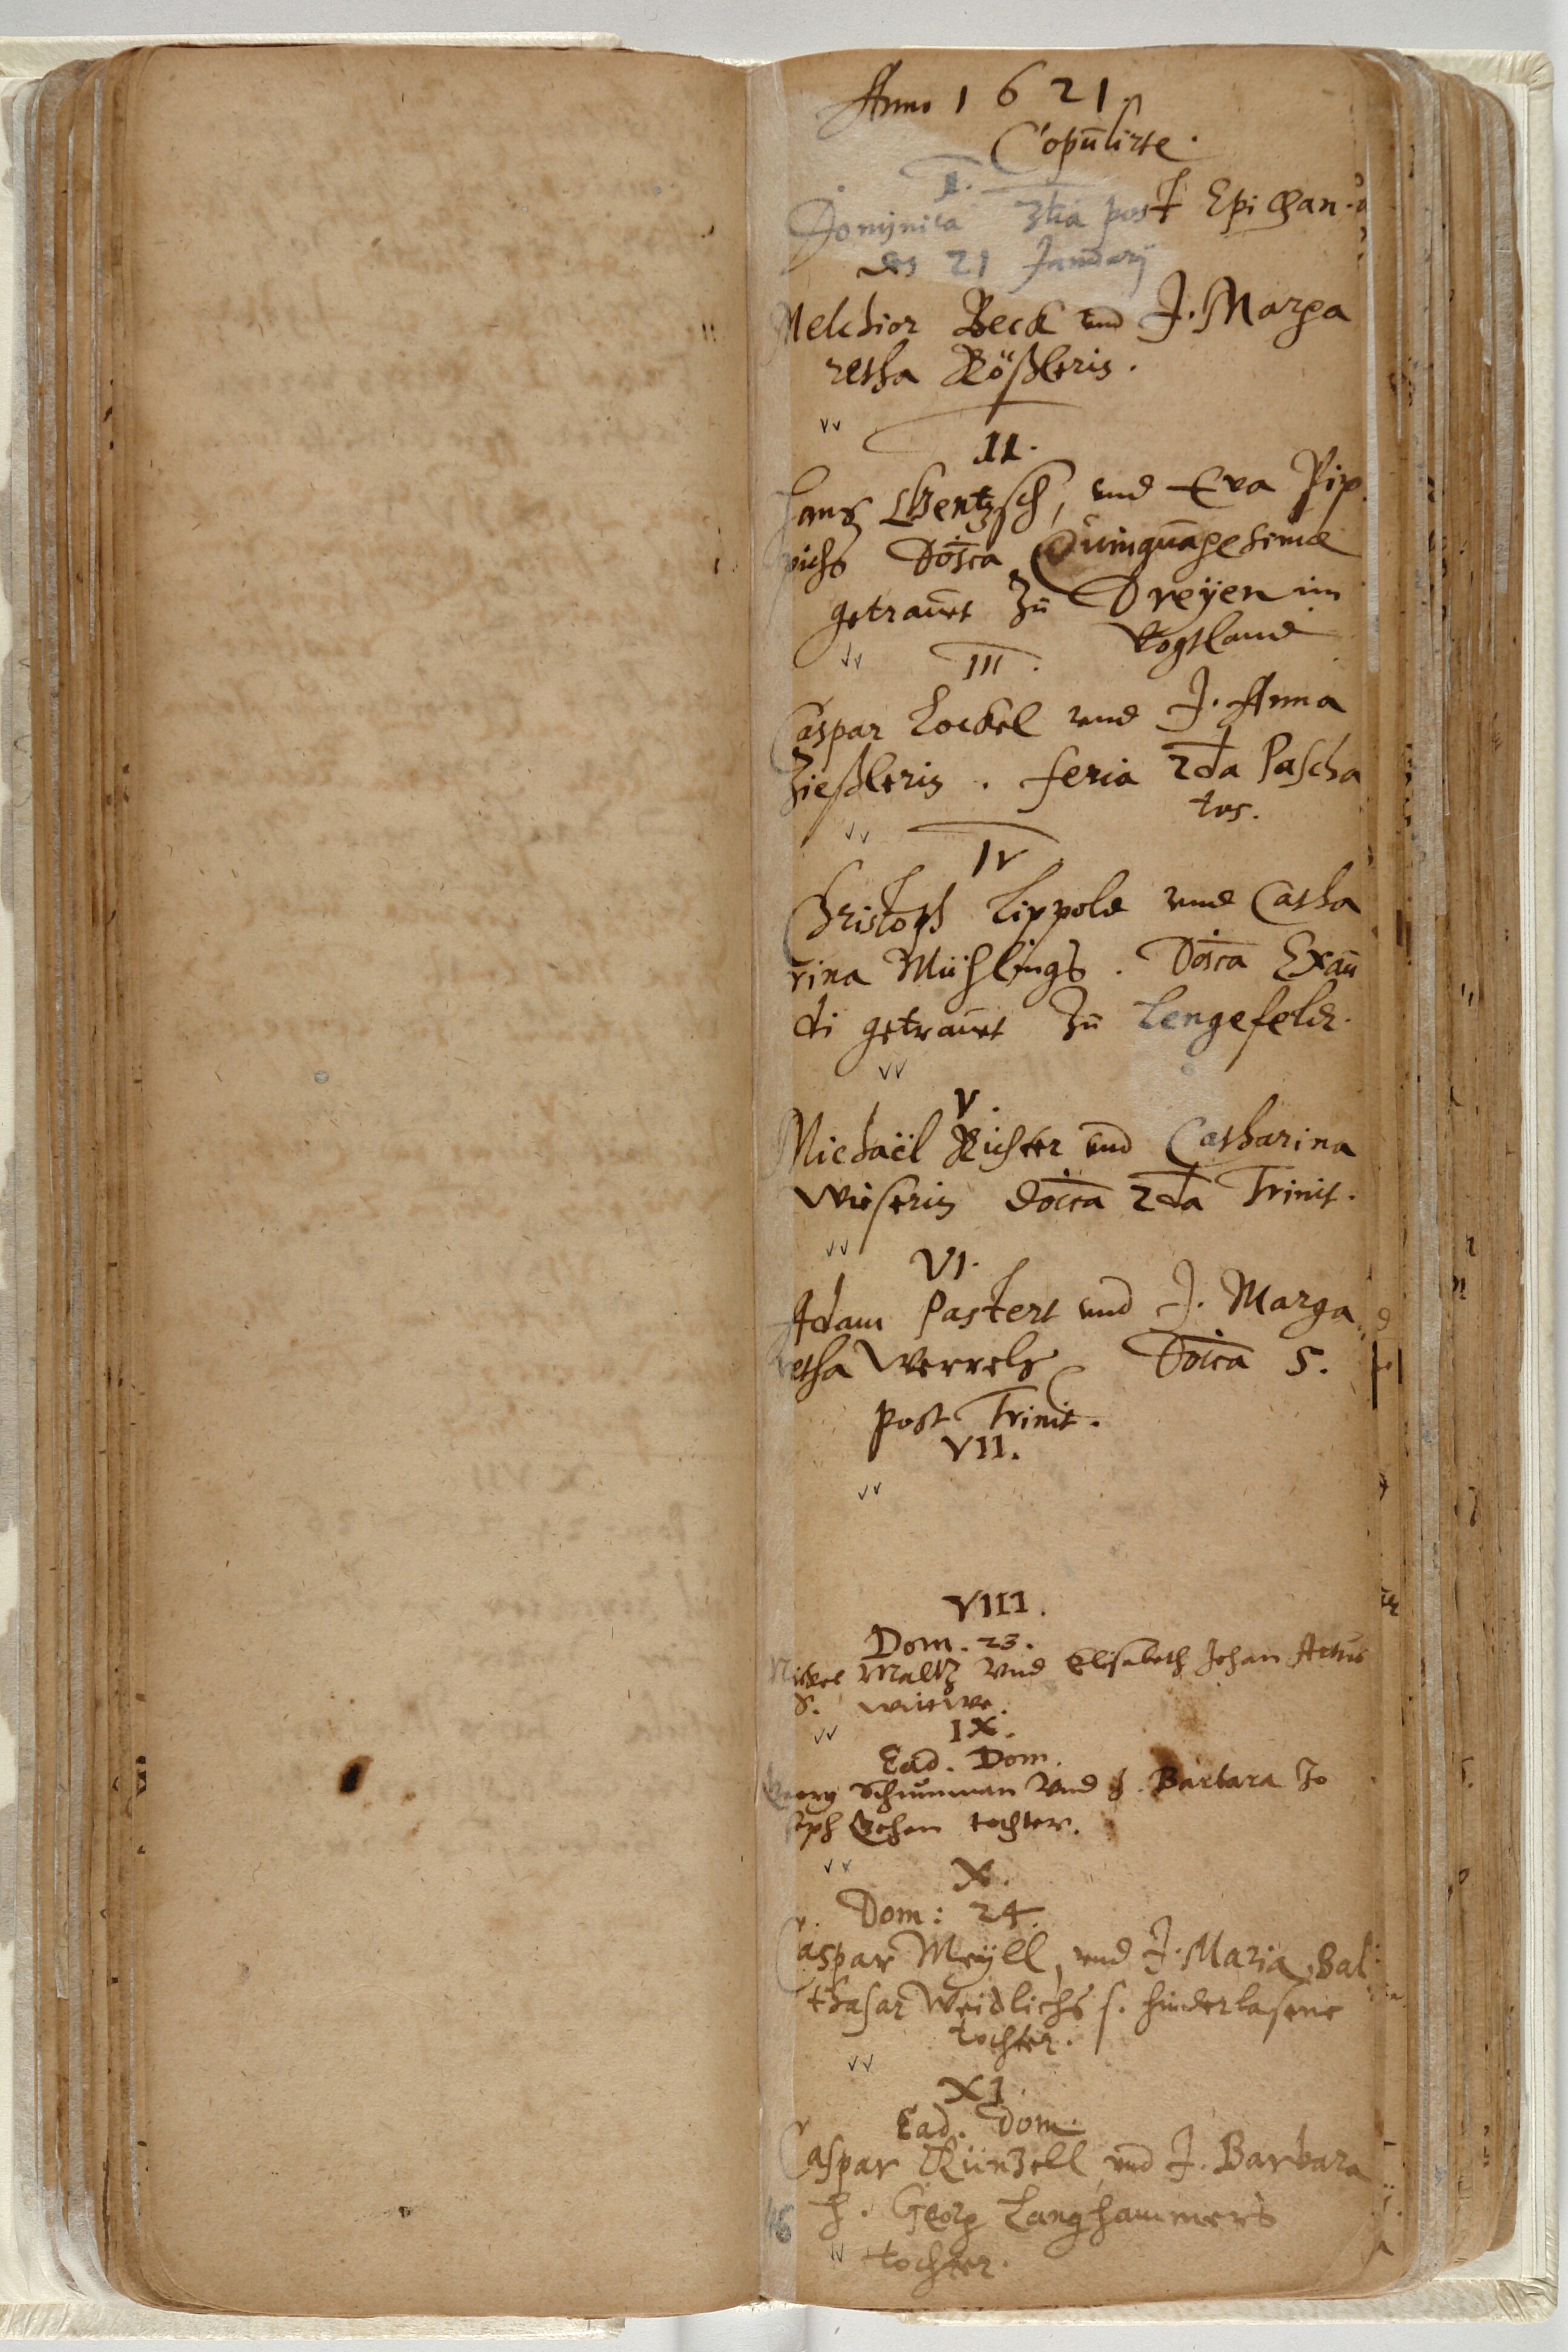 Anno 1621
Copulirte.
I.
Dominica 3tia post Epiphan.
des 21 Januarij
Melchior Beck und J. Marga
retha Rößlerin.
II.
Hans Wentzsch, und Eva Pip
pichs Dom̅ca Quinquagesimae
getrauet zu Dreÿen im
Vogtland
III.
Caspar Lockel und J. Anna
Zießlerin. feria 2da Pascha
tos.
IV
Christoph Lippold und Catha
rina Mühlings. Dom̅ca Exau
di getrauet zu Lengefeld.
V.
Michaël Richter und Catharina
Wieserin Dom̅ca 2da Trinit.
VI.
Adam Pastert und J. Marga
retha Werrels Dom̅ca 5.
post Trinit.
VII.
VIII.
Dom. 23.
Nickel Maltz Und Elisabeth Johan
S. Wittwe.
IX.
Ead. Dom.
Georg Schumman Und J. Barbara Jo
seph tochter.
X.
Dom: 24.
Caspar Meÿll, und J. Maria, Bal
thasar Weidlichs s. hinderlasene
tochter.
XI.
Ead. Dom.
Caspar Künzell und J. Barbara
H. Georg Langhammers
tochter.